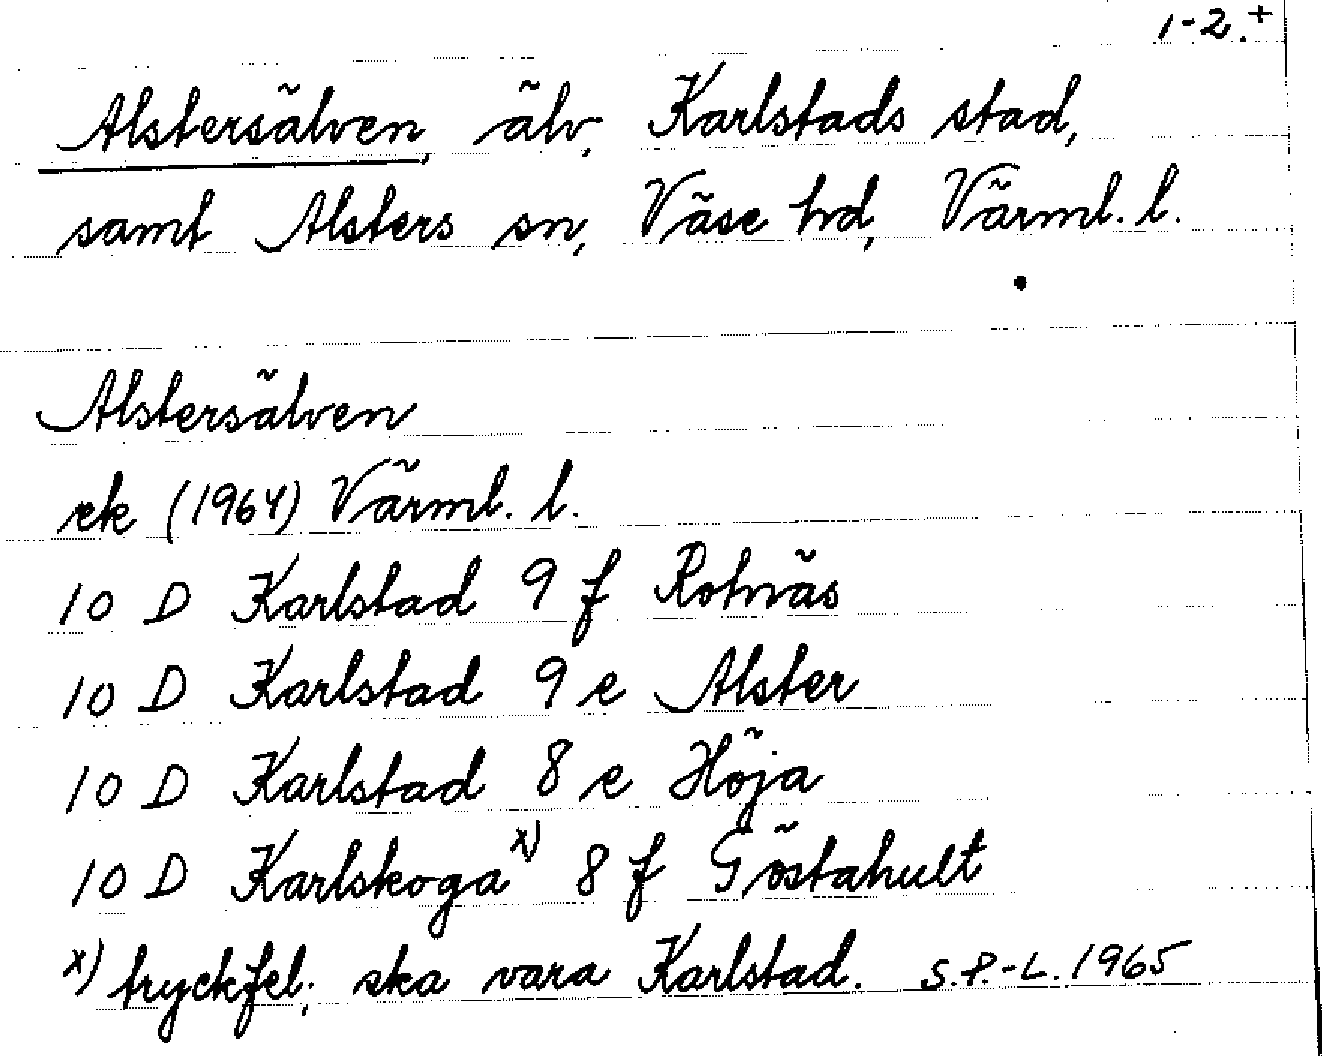 1-2.+
Alstersälven, älv, Karlstads stad,
samt Alsters sn, Väse hd, Värml. l.
Alstersälven
ek (1964) Värml. l.
10 D Karlstad 9 f Rotnäs
10 D Karlstad 9 e Alster
10 D Karlstad 8 e Höja
10 D Karlskoga x) 8 f Göstahult
x) tryckfel; ska vara Karlstad. S.P.-L. 1965